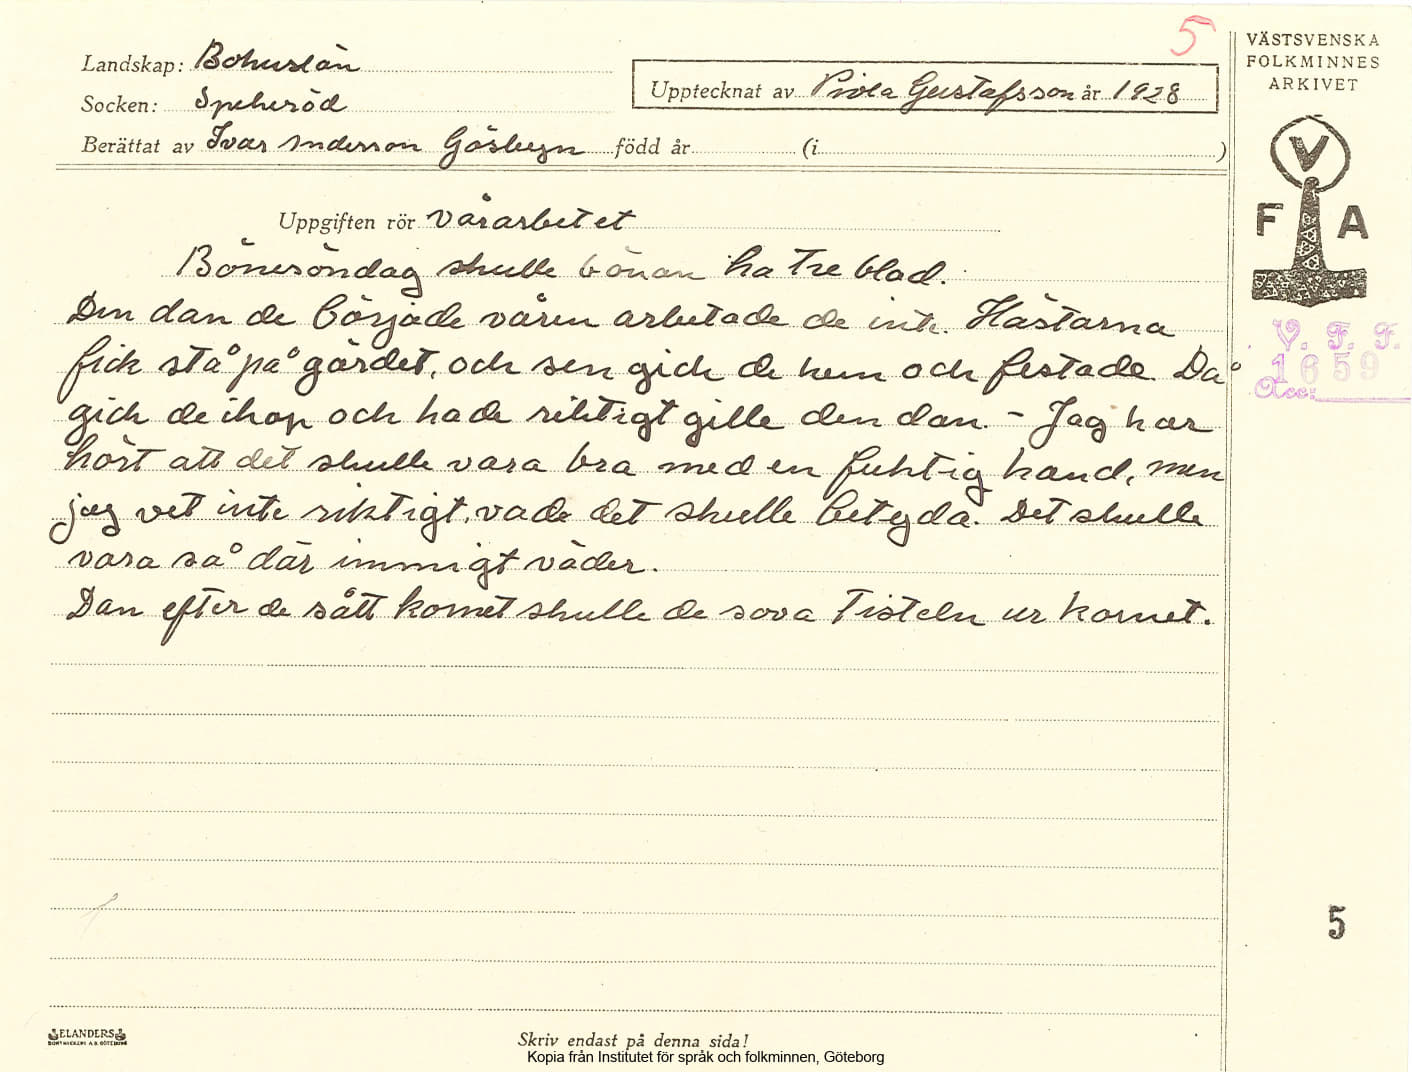 5
VÄSTSVENSKA
FOLKMINNES
ARKIVET
Landskap: Bohuslän
Socken: Spekeröd
Upptecknat av Viola Gustafsson år 1928
Berättat av Ivar Anderson Gösbyn född år (i )
V
F A
V. F. F.
1659
Acc:
Uppgiften rör vårarbetet
Bönesöndag skulle bönan ha tre blad.
Den dan de började våren arbetade de inte. Hästarna
fick stå på gärdet, och sen gick de hem och festade. Då
gick de ihop och hade riktigt gille den dan. - Jag har
hört att det skulle vara bra med en fuktig hand, men
jag vet inte riktigt, vade det skulle betyda. Det skulle
vara så där immigt väder.
Dan efter de sått kornet skulle de sova tisteln ur kornet.
5
ELANDERS
BOKTRYCKERI A.B. GÖTEBORG
Skriv endast på denna sida!
Kopia från Institutet för språk och folkminnen, Göteborg